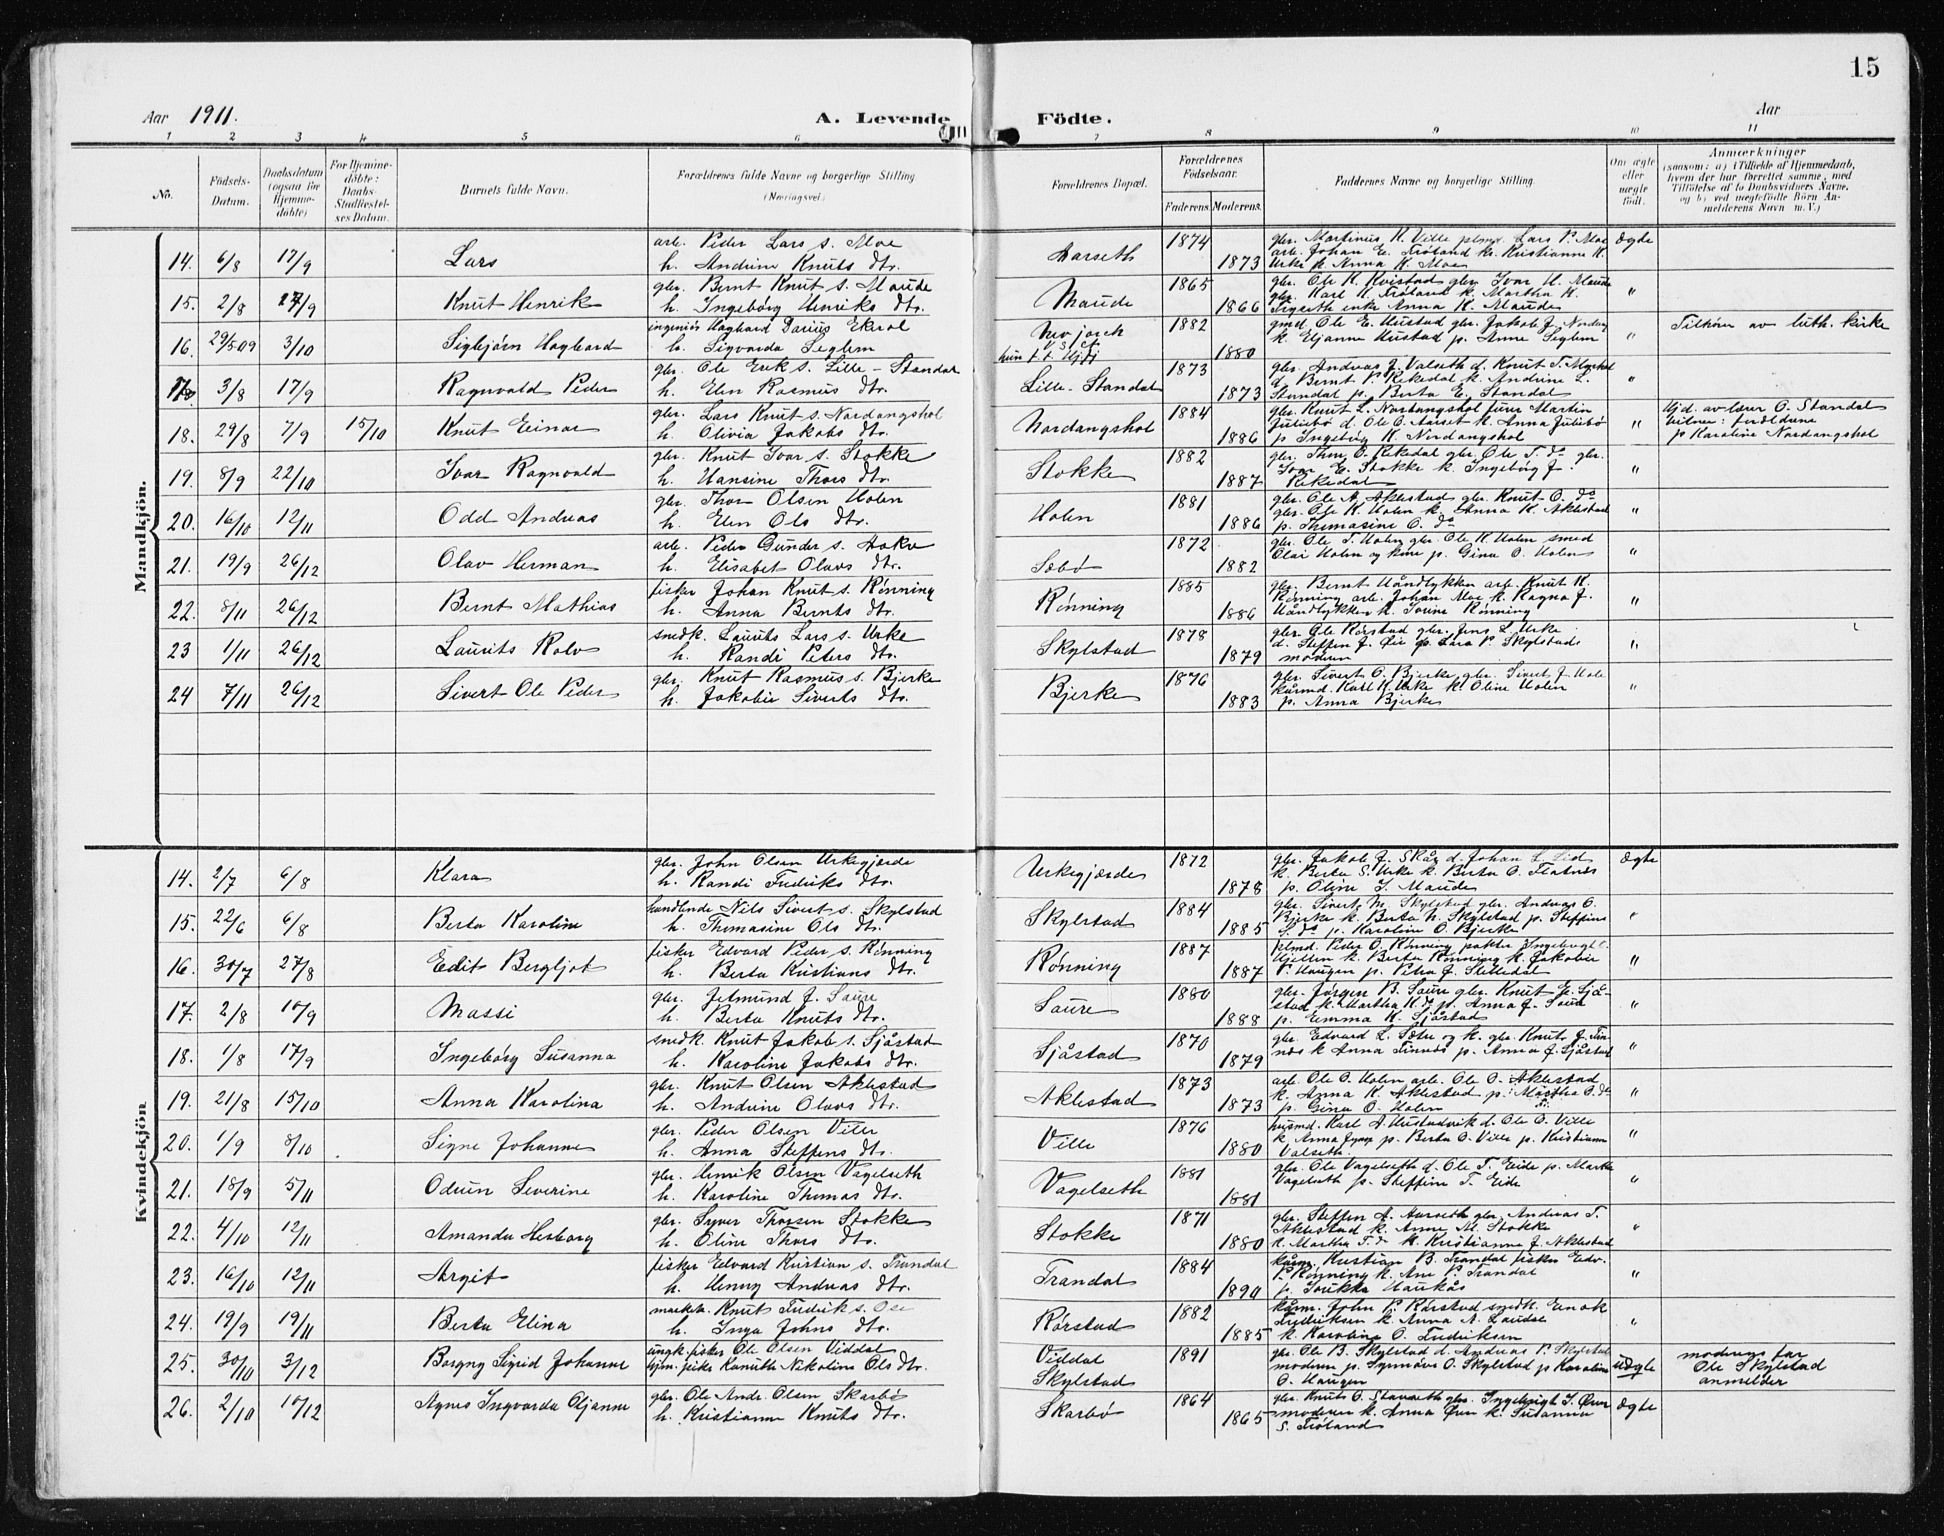 15
Aar 1911. A. Levende Födte. Aar
1 2 3 4 5 6 7 8 9 10 11
No. Födsels-Datum. Daabsdatum (ogsaa for Hjemmedöbte) For Hjemmedöbte: Daabs-Stadfæstelses Datum. Barnets fulde Navn. Forældrenes fulde Navne og borgerlige Stilling (Næringsvei) Forældrenes Bopæl. Forældrenes Födselsaar. Faderens. Moderens. Faddernes Navne og borgerlige Stilling. Om ægte eller uægte födt. Anmærkninger (saasom: a) i Tilfælde af Hjemmedaab, hvem der har forrettet samme, med Tilföielse af to Daabsvidners Navne, og b) ved uægtefödte Börn Anmelderens Navn m. V.)
Mandkjön.
14. 6/8 17/9 Lars arb. Peder Lars s. Moe Aarseth 1874 gbr. Martinus K. Ville Lars P. Moe Ægte
h. Andrine Knuts dtr. 1873 arb. Johan E. Frøland k. Kristianne K.
Urke p. Anna K. Moe
15. 2/8 27/9 Knut Henrik gbr. Bernt Knut s. Maude Maude 1865 gbr. Ole K. Kvistad gbr. Ivar H. Maude "
h. Ingebörg Henriks dtr. 1866 gbr. Karl K. Frøland k. Martha K.
enke Anna K. Maude
16. 29/5 09 3/10 Sigbjörn Hagbard ingeniör Hagbard Darius Ekrol New jorck 1882 gmd. Ole E. Hustad gbr. Jakob J. " Tilhører av luth. kirke
h. Sigvarda Seglem 1880 k. Eljanne Hustad p. Anne Seglem
17. 3/8 17/9 Ragnvald Peder gbr. Ole Erik s. Lille-Standal Lille-Standal 1873 gbr. Andreas J. Valseth d. Knut T. "
h. Elen Rasmus dtr. 1873 d. Bernt P. Rekedal k. Andrine L.
Standal p. Berta E. Standal
18. 29/8 7/9 15/10 Knut Einar gbr. Lars Knut s. Nordangshol Nordangshol 1884 gbr. Knut L. Nordangshol furer Martin " Hjd. av lærer O. Standal
h. Olivia Jakobs dtr. 1886 Julibø d. Ole O. Aarset k. Anna Julibø vitner: forældrene
p. Ingebrig K. Nordangshol p. Karoline Nordangshol
19. 8/9 22/10 Ivar Ragnvald gbr. Knut Ivar s. Stokke Stokke 1882 gbr. Thor O. Rekedal gbr. Ole T. do gbr. "
h. Hansine Thors dtr. 1887 Ivar E. Stokke k. Ingebörg J.
Rekedal
20. 16/10 12/11 Odd Andreas gbr. Thor Olsen Holen Holen 1881 gbr. Ole A. Aklestad gbr. Knut O. do "
h. Elen Ols dtr. 1886 gbr. Ole K. Holen k. Anna K. Aklestad
p. Thomasine O. do
21. 19/9 26/12 Olav Herman arb. Peder Gunder s. Sæbø 1872 gbr. Ole T. Holen gbr. Ole K. Holen smed "
h. Elisabet Olavs dtr. 1882 Olai Holen og kone p. Gina O. Holen
22. 8/11 26/12 Bernt Mathias fisker Johan Knut s. Rønning Rønning 1885 gbr. Bernt Haandlykken arb. Knut K. "
h. Anna Bernts dtr. 1886 Rønning arb. Johan Moe k. Ragna J.
Haandlykken k. Rønning
23 1/11 26/12 Laurits Rolv snedk. Laurits Lars s. Urke Skylstad 1878 gbr. Ole Rørstad gbr. Jens L. Urke "
h. Randi Peters dtr. 1879 d. Steffen J. Øie p. Lara P. Skylstad
moderen
24 7/11 26/12 Sivert Ole Peder gbr. Knut Rasmus s. Bjerke Bjerke 1876 gbr. Sivert O. Bjerke gbr. Sivert J. "
h. Jakobie Siverts dtr. 1883 kårmd. Karl K. Urke k. Oline Holen
p. Anna Bjerke
Kvindekjön
14. 2/7 6/8 Klara gbr. John Olsen Urkegjærde Urkegjærde 1872 gbr. Jakob J. Skår d. Johan L. Lid Ægte
h. Randi Fredriks dtr. 1878 k. Berta S. Urke k. Berta O. Flatnes
p. Oline I. Maude
15. 22/6 6/8 Berta Karoline handlende Nils Sivert s. Skylstad Skylstad 1884 gbr. Sivert N. Skylstad gbr. Andreas O. "
h. Thomasine Ols dtr. 1885 Bjerke k. Berta N. Skylstad p. Steffine
S. do p. Karoline O. Bjerke
16. 30/7 27/8 Edit Bergljot fisker Edvard Peder s. Rønning Rønning 1887 plmd. Peder O. Rønning "
h. Berta Kristians dtr. 1887 k. Berta Rønning k. Jakobie
P. Haugen p. Petra J.
17. 2/8 10/9 Massi gbr. Jetmund J. Saure Saure 1880 gbr. Jørgen B. Saure gbr. Knut E. Sjå- "
h. Berta Knuts dtr. 1888 stad k. Martha K. do p. Anna J. Saure
p. Emma K. Sjåstad
18. 1/8 17/9 Ingebörg Susanna snedk. Knut Jakob s. Sjåstad Sjåstad 1870 gbr. Edvard L. Sæter og k. gbr. Knut J. Fin- "
h. Karoline Jakobs dtr. 1879 nes k. Anna Finnes p. Anna J. Sjåstad
19. 21/8 15/10 Anna Karolina gbr. Knut Olsen Aklestad Aklestad 1873 arb. Ole O. Holen arb. Ole O. Aklestad "
h. Andrine Olavs dtr. 1873 k. Anna K. Aklestad p. Martha O. do
p. Gina O. Holen
20. 1/9 8/10 Signe Johanne gbr. Peder Olsen Ville Ville 1876 husmd. Karl A. Hustadvik d. Ole O. Ville "
h. Anna Steffens dtr. 1880 k. Anna p. Berta O. Ville p. Kristianne
Valseth
21. 18/9 5/11 Odrun Severine gbr. Henrik Olsen Vagelseth Vagelseth 1881 gbr. Ole Vagelseth d. Ole T. Eide p. Marta "
h. Karoline Thomas dtr. 1881 Vagelseth p. Steffine T. Eide
22. 4/10 12/11 Amanda Herborg gbr. Syver Thorsen Stokke Stokke 1871 gbr. Steffen A. Aarseth gbr. Andreas T. "
h. Oline Thors dtr. 1880 Aklestad k. Anne M. Stokke
k. Martha T. do k. Kristianne J. Aklestad
23. 16/10 12/11 Argit fisker Edvard Kristian s. Trandal Trandal 1884 kårm. Kristian B. Trandal fisker Edv. "
h. Henny Andreas dtr. 1890 P. Rønning k. Ane P. Trandal
p. Haukås
24. 19/9 19/11 Berta Elina Knut Fredrik s. Ose Rørstad 1882 kårm. John P. Rørstad snedk. Enok "
h. Inga Johns dtr. 1885 Fredriksen k. Anna A. Lausde
k. Karoline O. Fredriksen
25. 30/10 3/12 Borgny Sigrid Johanne ungk. fisker Ole Olsen Viddal Viddal 1891 gbr. Ole B. Skylstad d. Andreas P. Skylstad uægte moderens far
pike Kamilla Nikoline Ols dtr. Skylstad moderen p. Synnöve O. Skylstad p. Karoline Ole Skylstad
O. Haugen anmelder
26. 2/10 10/12 Agnes Ingvarda Oljanne gbr. Ole Andr. Olsen Skarbø Skarbø 1864 gbr. Knut O. Stavseth gbr. Ingebrigt I. Øren Ægte
h. Kristianne Knuts dtr. 1865 moderen k. Anna Øren k. Susanna
S. Frøland